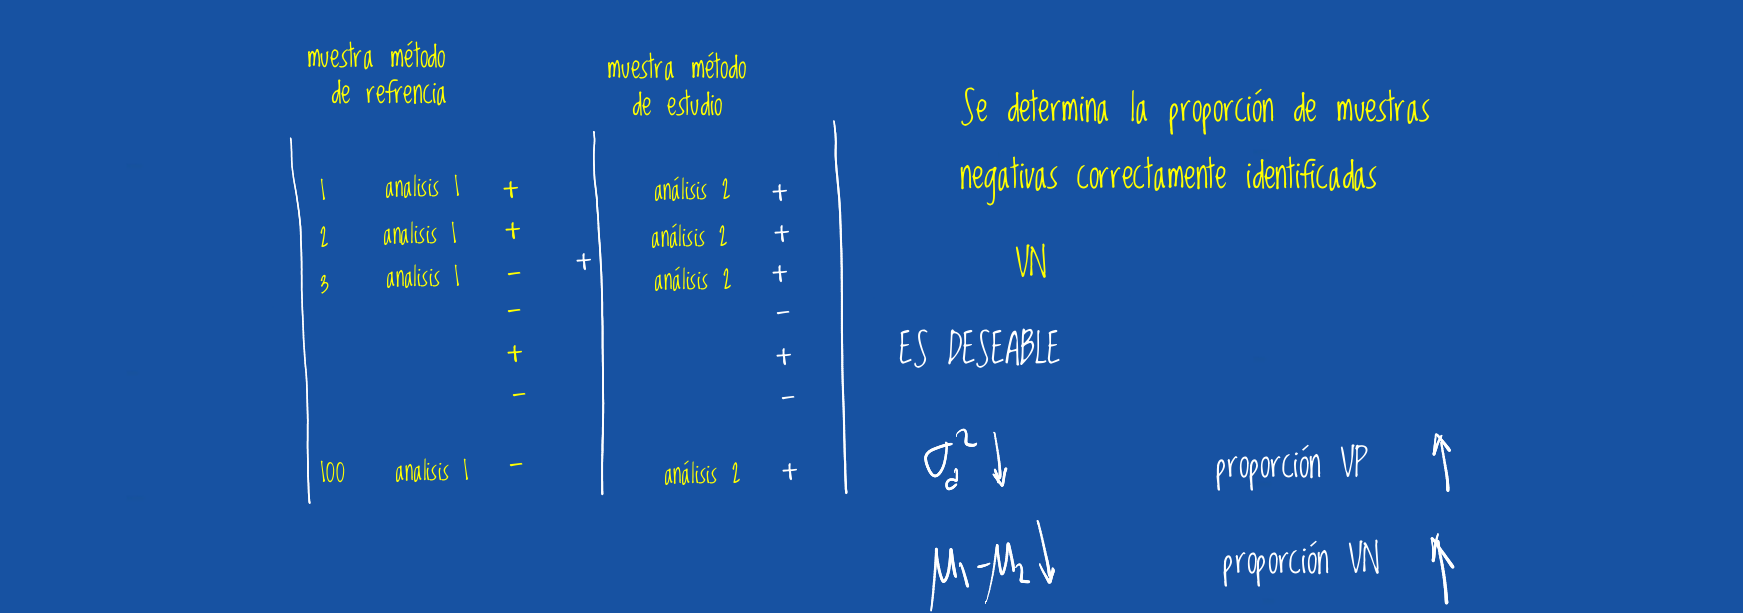 muestra método
de refrencia
muestra método
de estudio
1 analisis 1 + análisis 2 +
2 analisis 1 + análisis 2 +
3 analisis 1 - + análisis 2 +
- -
+ +
- -
100 analisis 1 - análisis 2 +
Se determina la proporción de muestras
negativas correctamente identificadas
VN
ES DESEABLE
σ²d ↓ proporción VP ↑
μ1 - μ2 ↓ proporción VN ↑